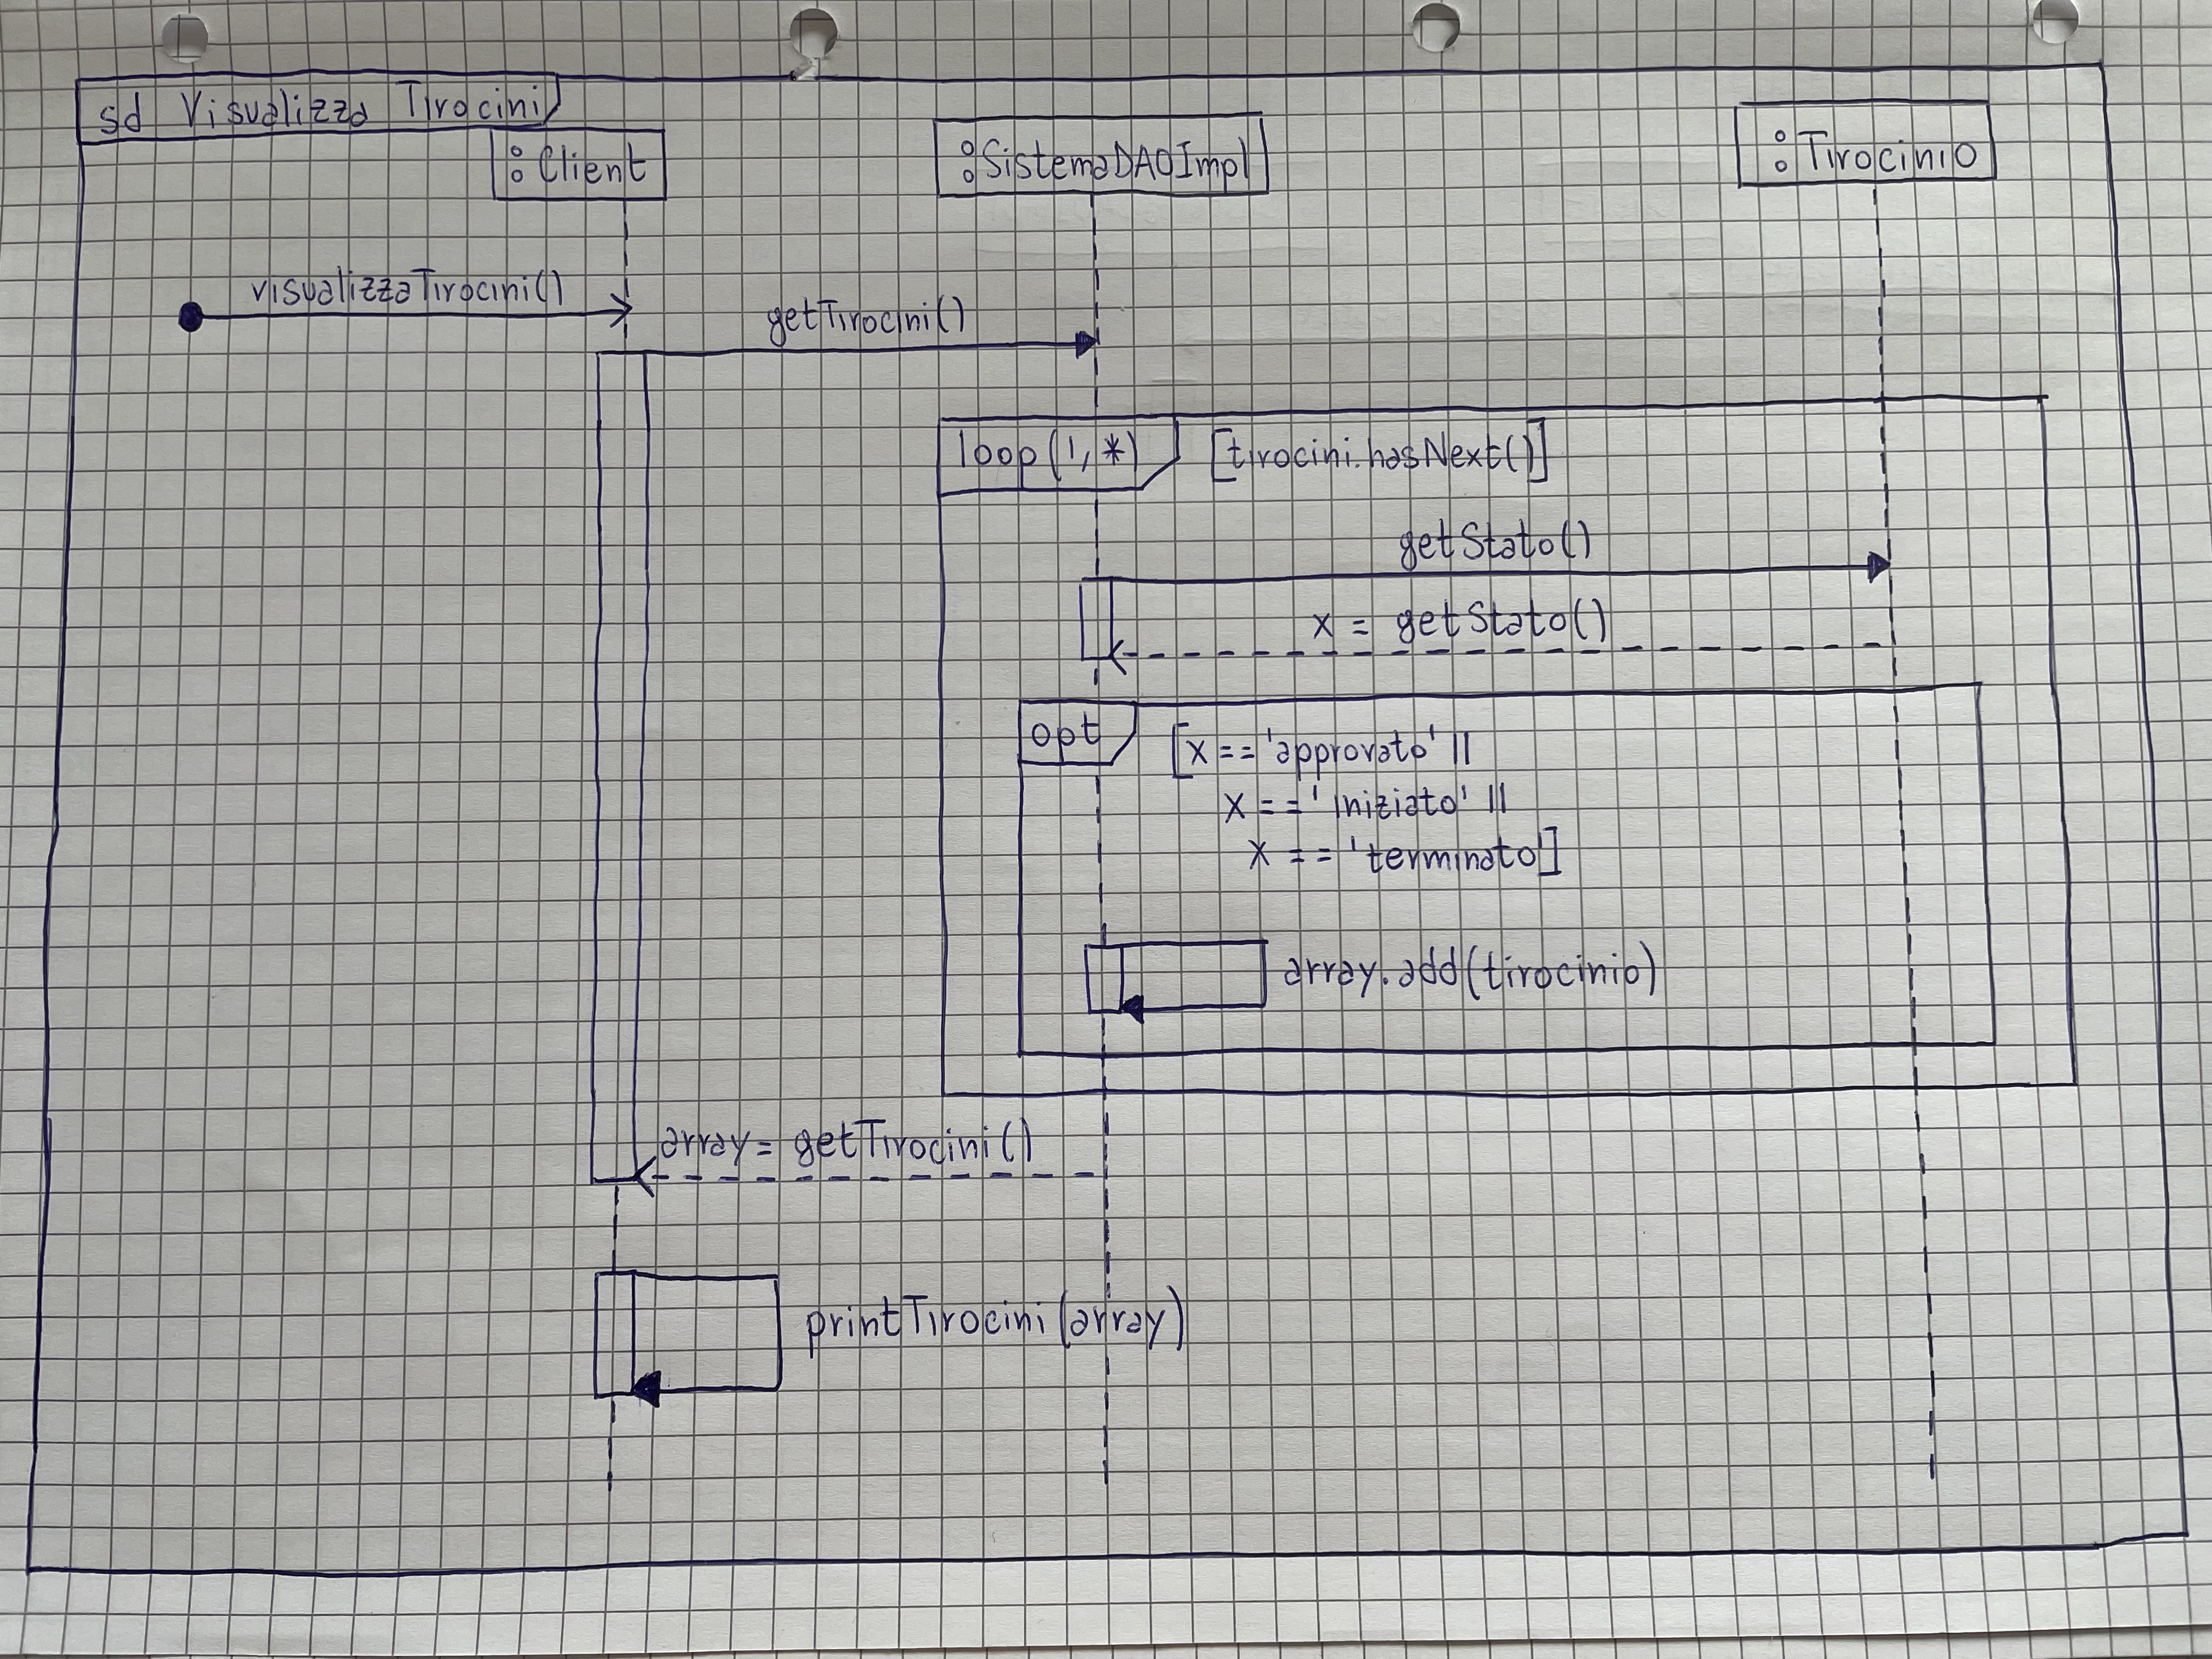 sd Visualizza Tirocini
:Client
:SistemaDAOImpl
:Tirocinio
visualizzaTirocini()
getTirocini()
loop(1,*) [tirocini.hasNext()]
getStato()
x = getStato()
opt [x=='approvato' ||
x=='Iniziato' ||
x=='terminato']
array.add(tirocinio)
array = getTirocini()
printTirocini(array)